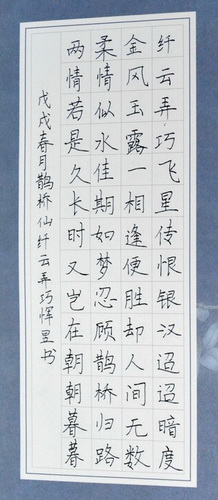 纤云弄巧飞星传恨银汉迢迢暗度
金风玉露一相逢便胜却人间无数
柔情似水佳期如梦忍顾鹊桥归路
两情若是久长时又岂在朝朝暮暮
戊戌春月鹊桥仙纤云弄巧恽昱书